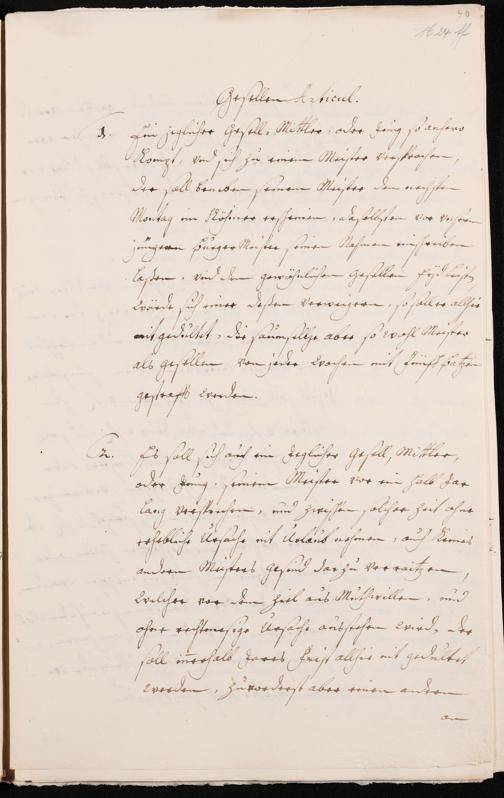 40
Gesellen Articul.
1. Ein jeglicher Gesell, Mittler, oder Jung so anhero
kompt, und sich zu einem Meister versprochen,
der soll beneben seinem Meister den nechsten
Montag im Römer erscheinen, daselbsten vor unserm
jüngern Burger Meister seinen Nahmen einschreiben
laßen, und den gewöhnlichen Gesellen Eyd
würde sich einer deßen verweigern, so soll er allhie
nit gedultet, die saumselige aber so wohl Meister
als Gesellen von jeder Wochen mit Batzen
gestrafft werden.
2. Es soll sich auch ein jeglicher Gesell, Mittler,
oder Jung, seinem Meister vor ein halb Jar
lang versprechen, und zwischen solcher Zeit ohne
erhebliche Ursache nit Urlaub nehmen, auch keines
andern Meisters Gesind darzu verraitzen,
Welcher vor dem Ziel aus Muthwillen, und
ohne rechtmesige Ursache aufstehen wird, der
soll innerhalb Jares Frist allhie nit gedultet
werden, zuvorderst aber einen andern
an